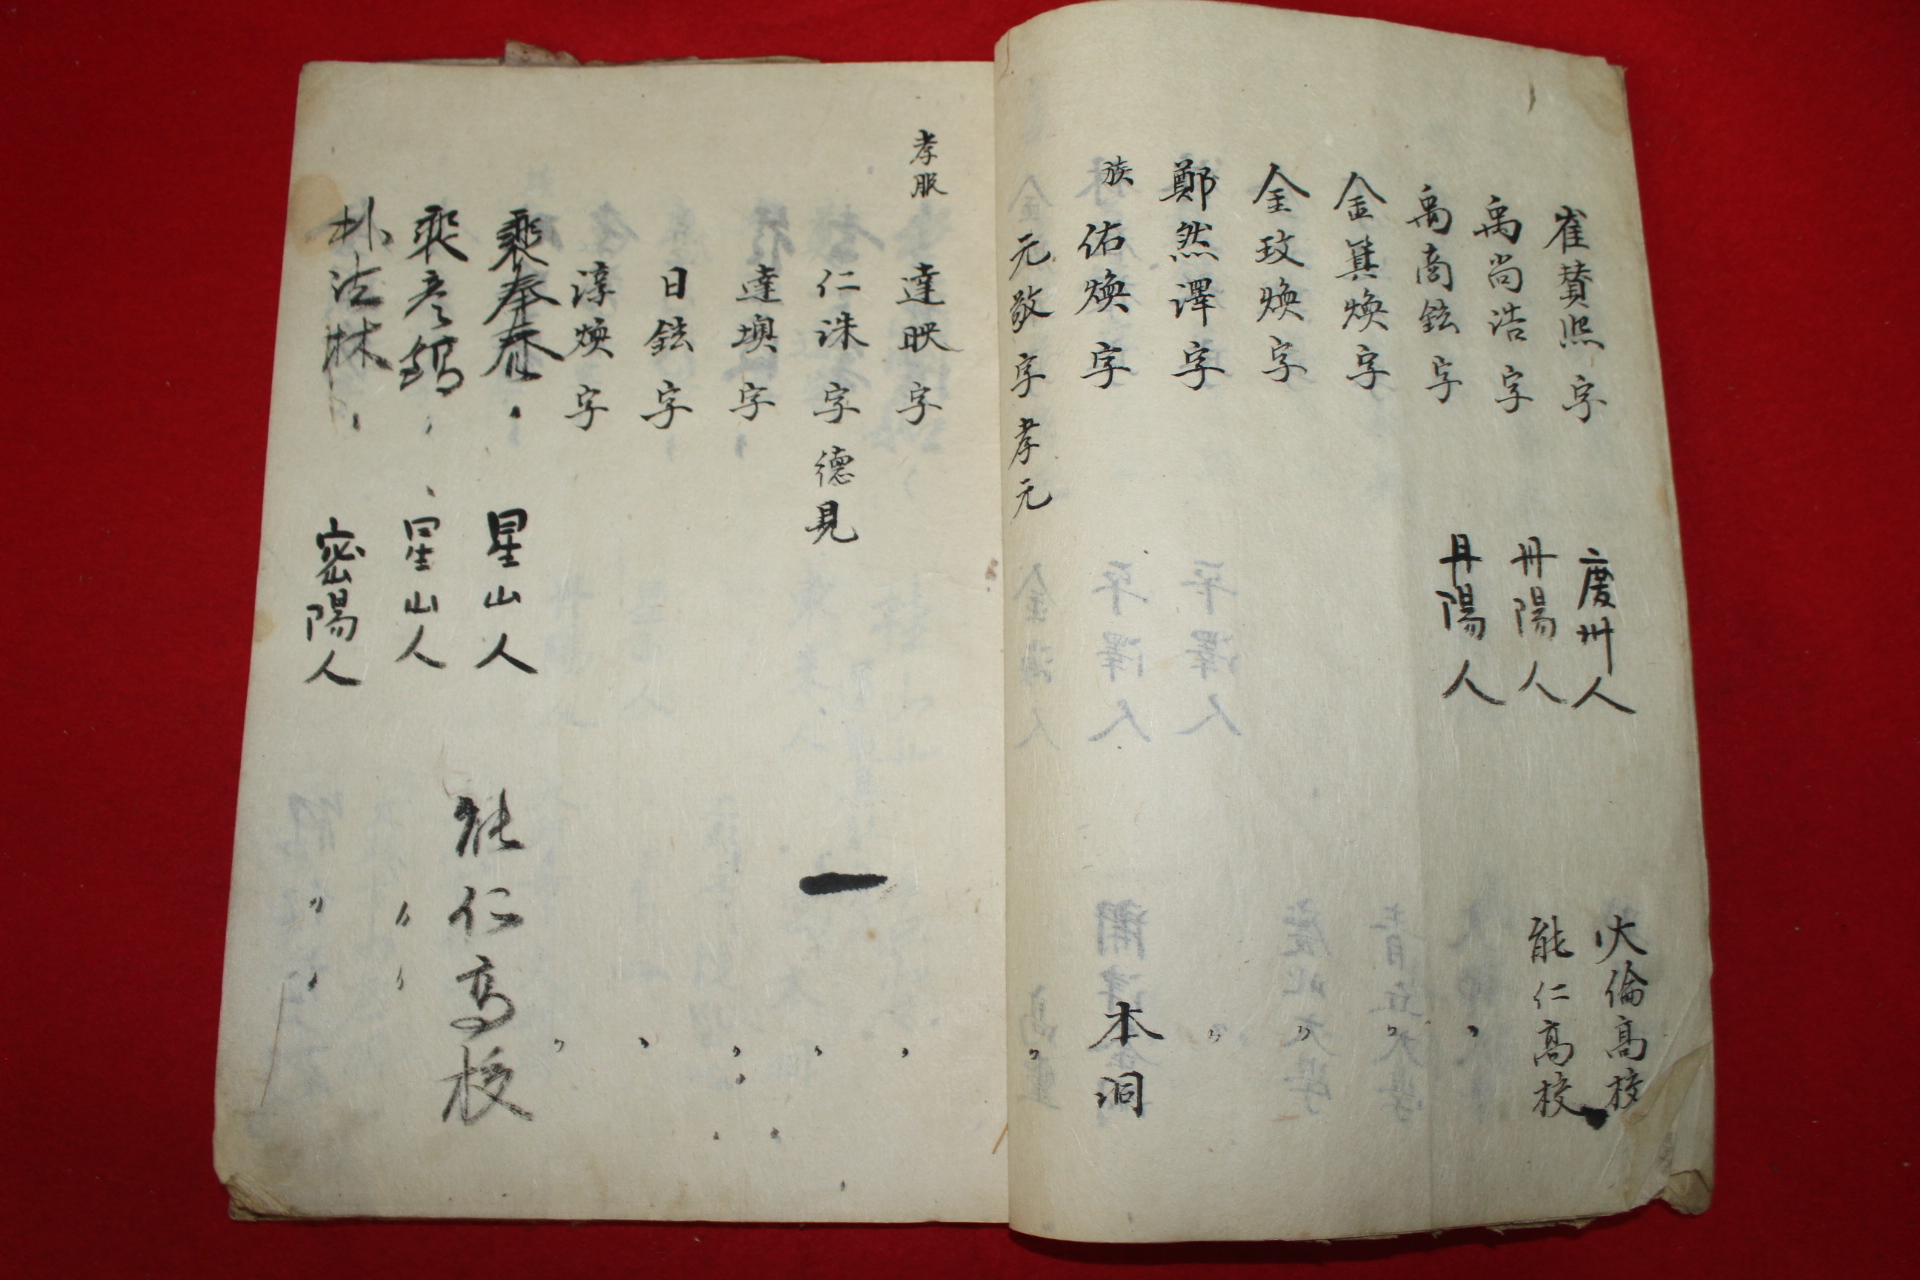 崔賛熙 字 慶州人 大倫高校
禹尚浩 字 丹陽人 能仁高校
禹商鉉 字 丹陽人 〃
金箕煥 字 〃
金玟煥 字 〃
鄭然澤 字 〃
族 佑煥 字 本洞
元敬 字 孝元 〃
孝服 達映 字 〃
仁洙 字 德見 〃
達塽 字 〃
日鉉 字 〃
淳煥 字 〃
裵奉春 〃 星山人 能仁高校
裵彦鎬 〃 星山人 〃 〃
朴法林 〃 密陽人 〃 〃